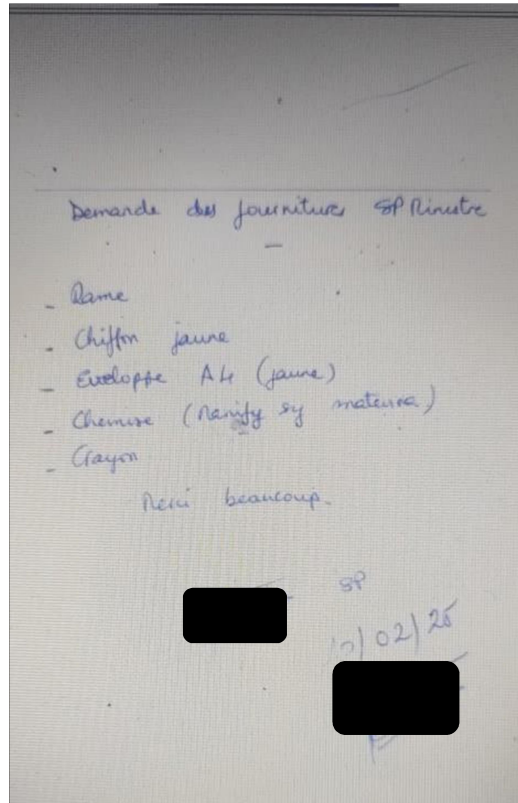 Demande des fournitures SP Ministre
- Rame
- Chiffon jaune
- Enveloppe A4 (jaune)
- Chemise (Manify sy matevina)
- Crayon
Merci beaucoup.
SP
/02/25